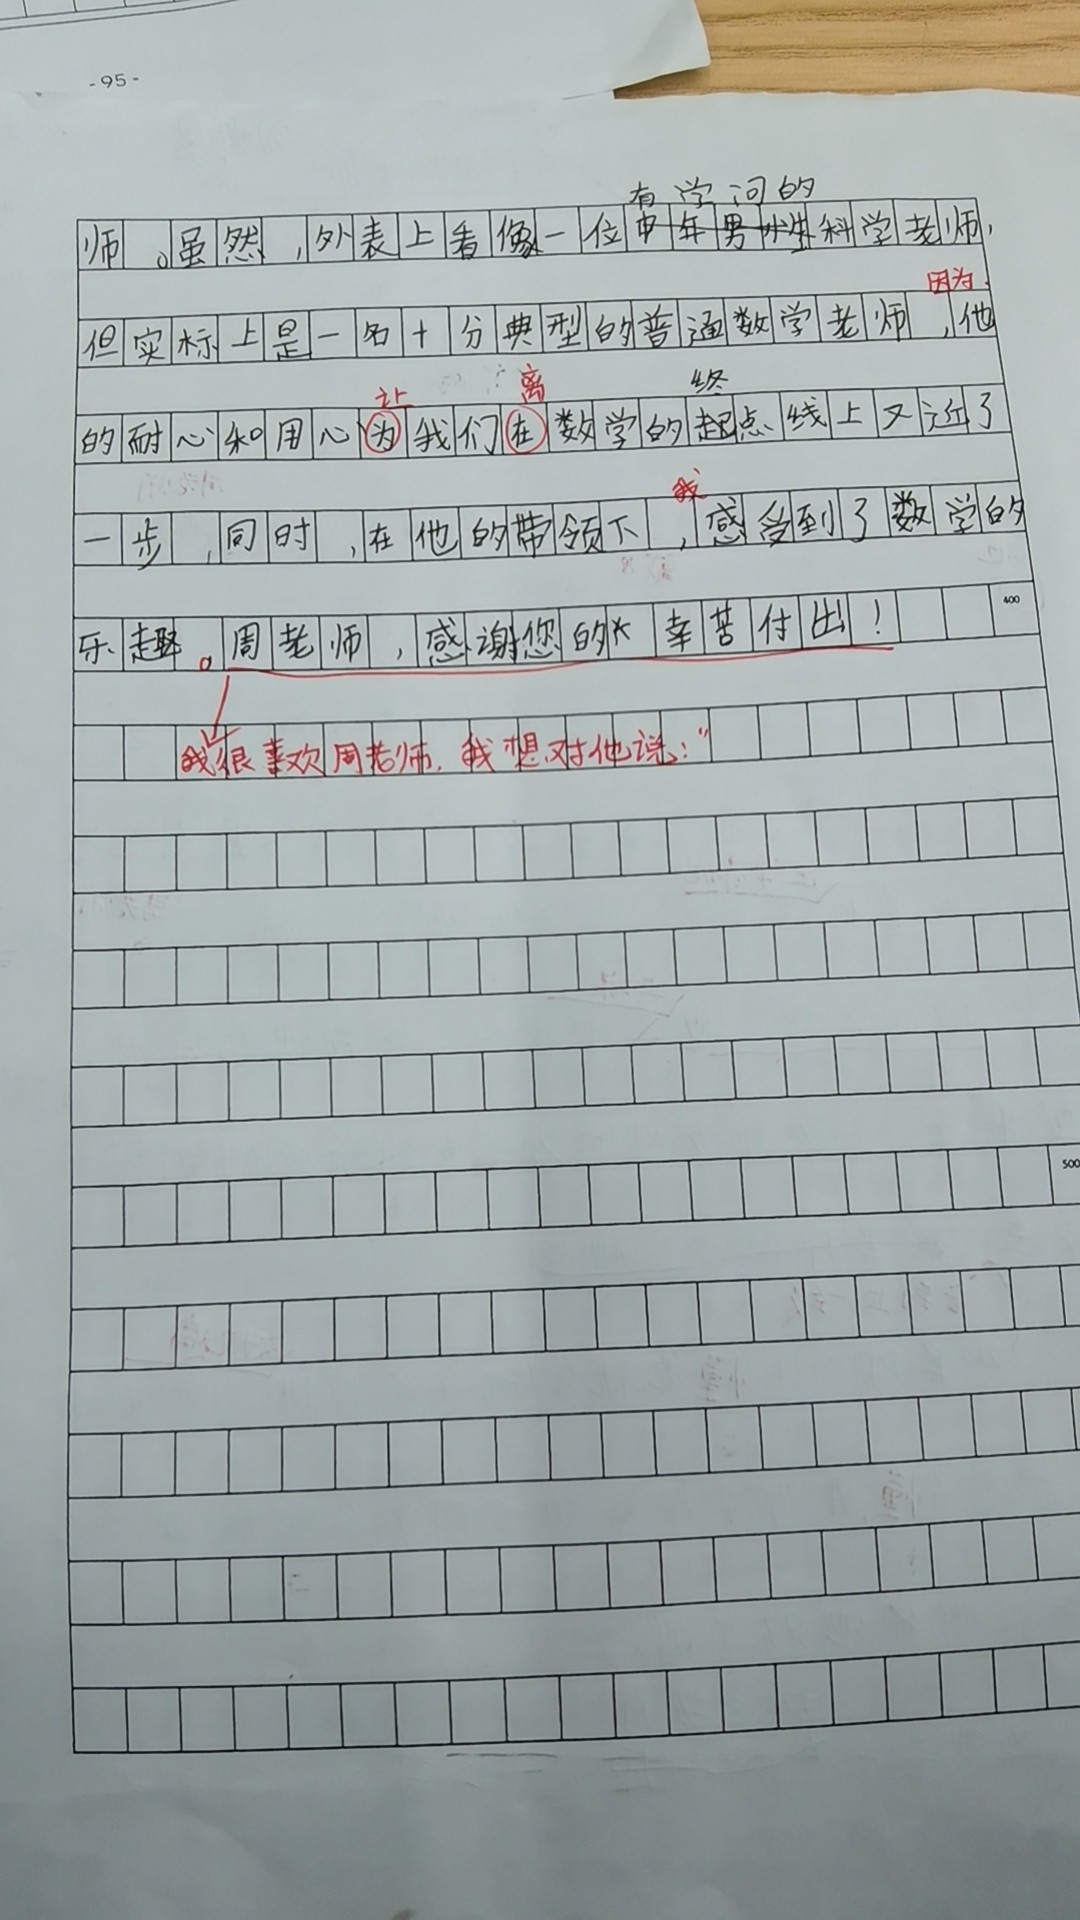 -95-
有学问的
师。虽然，外表上看像一位中年男性科学老师，
因为
但实标上是一名十分典型的普通数学老师，他
让 离 终
的耐心和用心为我们在数学的起点线上又近了
我
一步，同时，在他的带领下，感受到了数学的
乐趣。周老师，感谢您的辛苦付出！
400
我很喜欢周老师，我想对他说：“
500